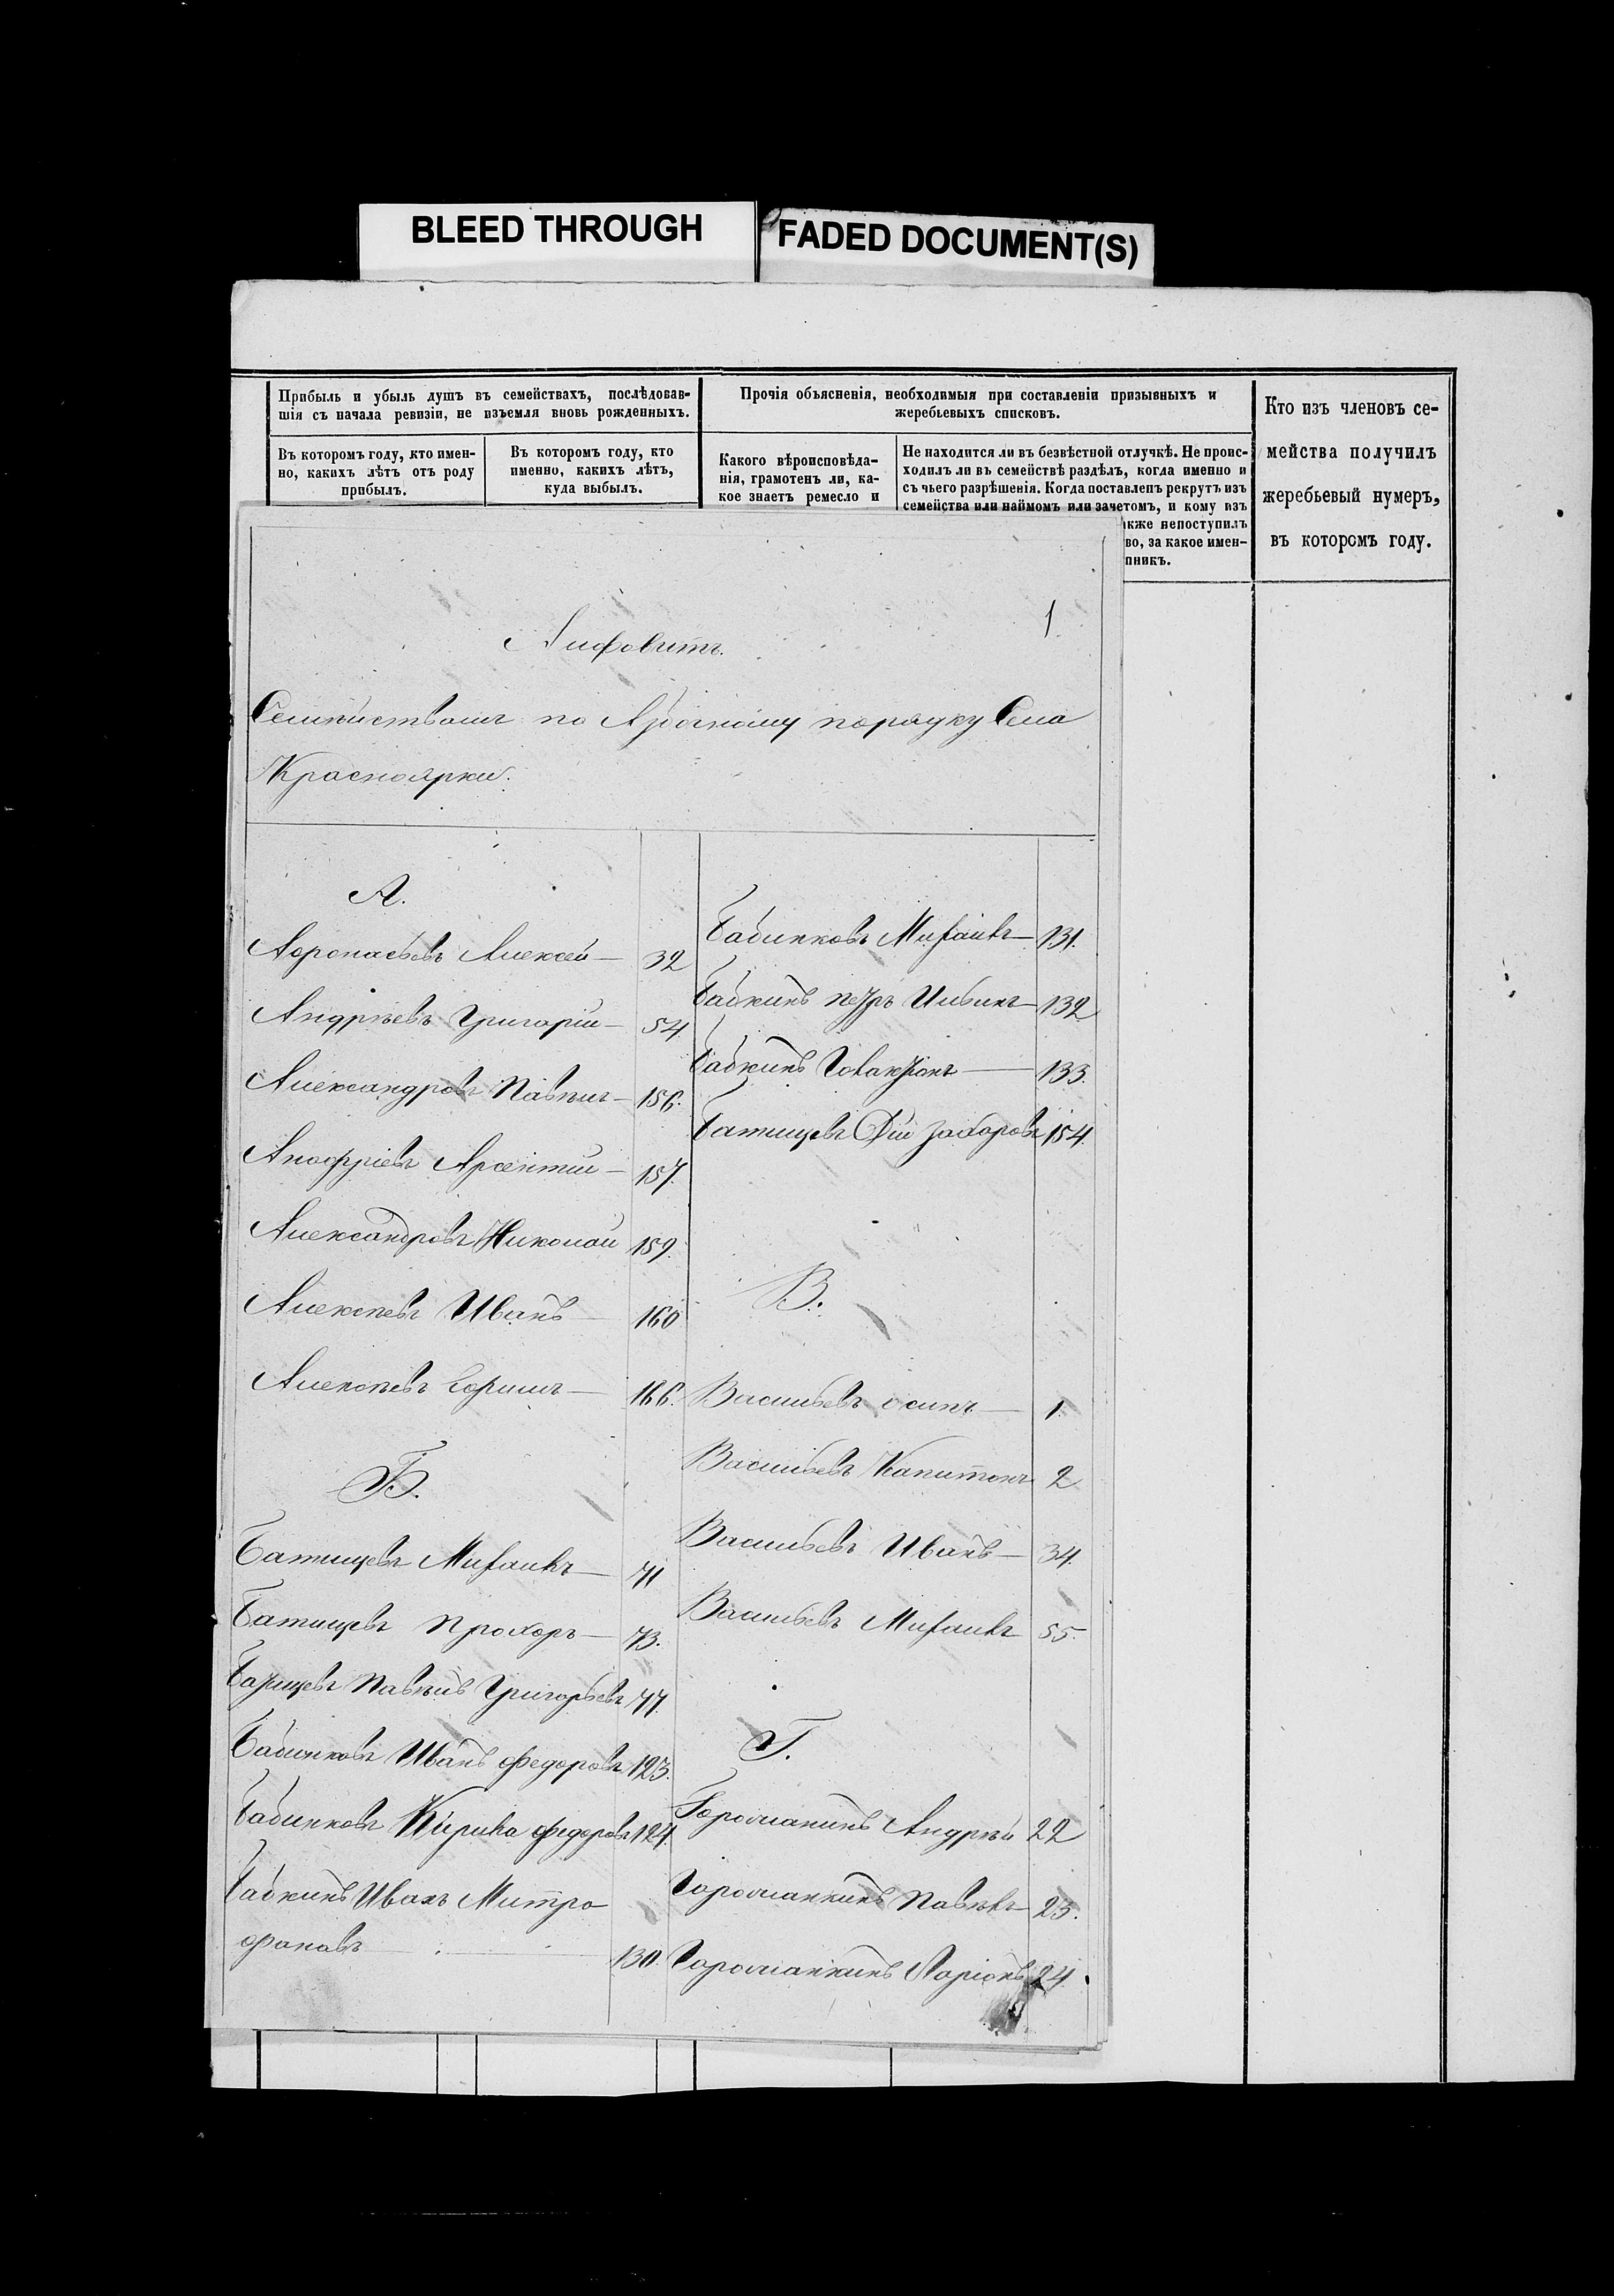 BLEED THROUGH
FADED DOCUMENT(S)
Прибыль и убыль душъ въ семействахъ, послѣдовав-
шія съ начала ревизіи, не изъемля вновь рожденныхъ.
Въ которомъ году, кто имен-
но, какихъ лѣтъ отъ роду
прибылъ.
Въ которомъ году, кто
именно, какихъ лѣтъ,
куда выбылъ.
Прочія объясненія, необходимыя при составленіи призывныхъ и
жеребьевыхъ списковъ.
Какого вѣроисповѣда-
нія, грамотенъ ли, ка-
кое знаетъ ремесло и
Не находится ли въ безвѣстной отлучкѣ. Не проис-
ходилъ ли въ семействѣ раздѣлъ, когда именно и
съ чьего разрѣшенія. Когда поставленъ рекрутъ изъ
семейства или наймомъ или зачетомъ, и кому изъ
кже непоступилъ
во, за какое имен-
пникъ.
Кто изъ членовъ се-
мейства получилъ
жеребьевый нумеръ,
въ которомъ году.
1
Алфовитъ
Семействамъ по порядку Села
Красноярки.
А.
Алексей 32
Андрѣевъ Григорій 54
Александровъ Павелъ 156.
АноФріевъ Арсентій 157.
Александровъ Николай 159.
Алексѣевъ Иванъ 160
Алексѣевъ 166.
Б.
Батищевъ Михаилъ 71
Батищевъ Прохоръ 73.
Батищевъ Григорьевъ 77
Бабинковъ Иванъ Федоровъ 123.
Бабинковъ Кирила Федоровъ 124.
Бабкинъ Иванъ Митро
фановъ 130.
Бабинковъ Михаилъ 131.
Бабкинъ Петръ 132
Бабкинъ 133.
Батищевъ Захаровъ 154.
В.
Васильевъ Осипъ 1.
Васильевъ Капитонъ 2
Васильевъ Иванъ 34.
Васильевъ Михаилъ 55.
Г.
Андрѣй 22
Павелъ 23.
Ларіонъ 24.